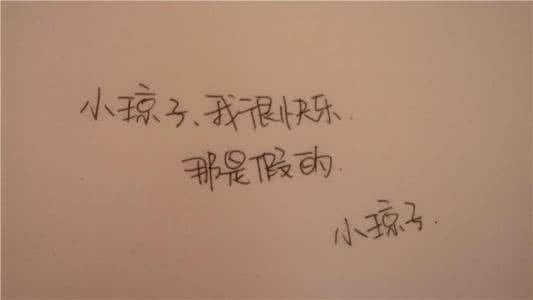 小琼子、我很快乐.
那是假的.
小琼子.